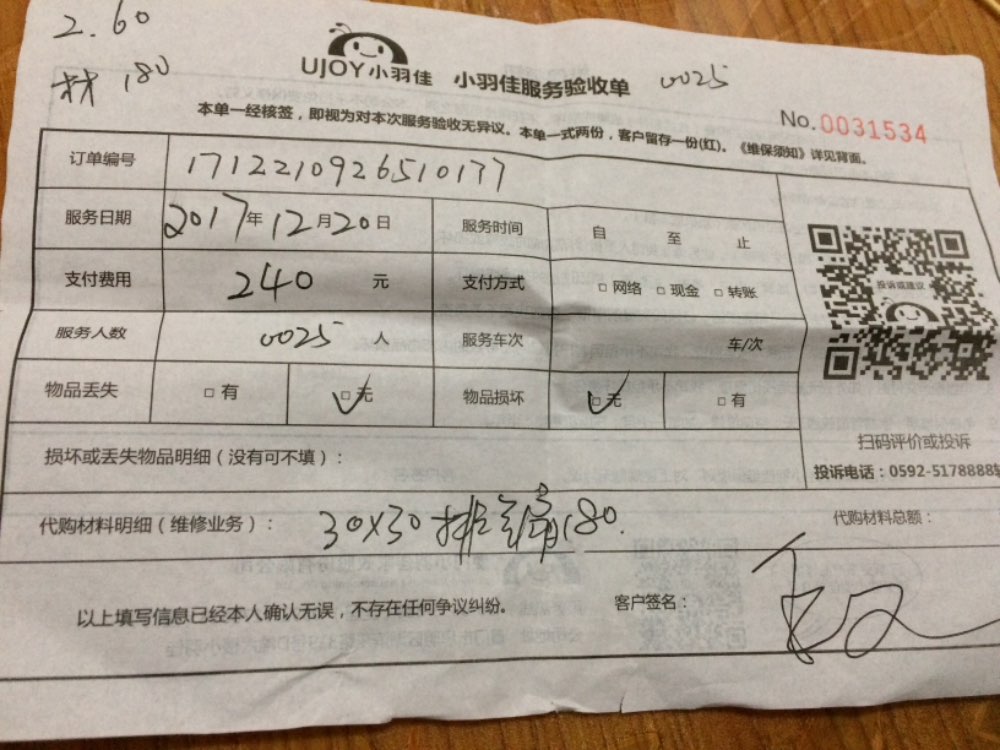 2.60
材 180
UJOY小羽佳 小羽佳服务验收单 0025
No.0031534
本单一经核签，即视为对本次服务验收无异议。本单一式两份，客户留存一份(红)。《维保须知》详见背面。
订单编号 1712210926510177
服务日期 2017年12月20日 服务时间 自 至 止
支付费用 240 元 支付方式 □网络 □现金 □转账
投诉或建议
服务人数 0025 人 服务车次 车/次
物品丢失 □有 □无 物品损坏 □无 □有
扫码评价或投诉
损坏或丢失物品明细（没有可不填）：
投诉电话：0592-5178888转
代购材料明细（维修业务）： 30X30排 180. 代购材料总额：
以上填写信息已经本人确认无误，不存在任何争议纠纷。 客户签名：